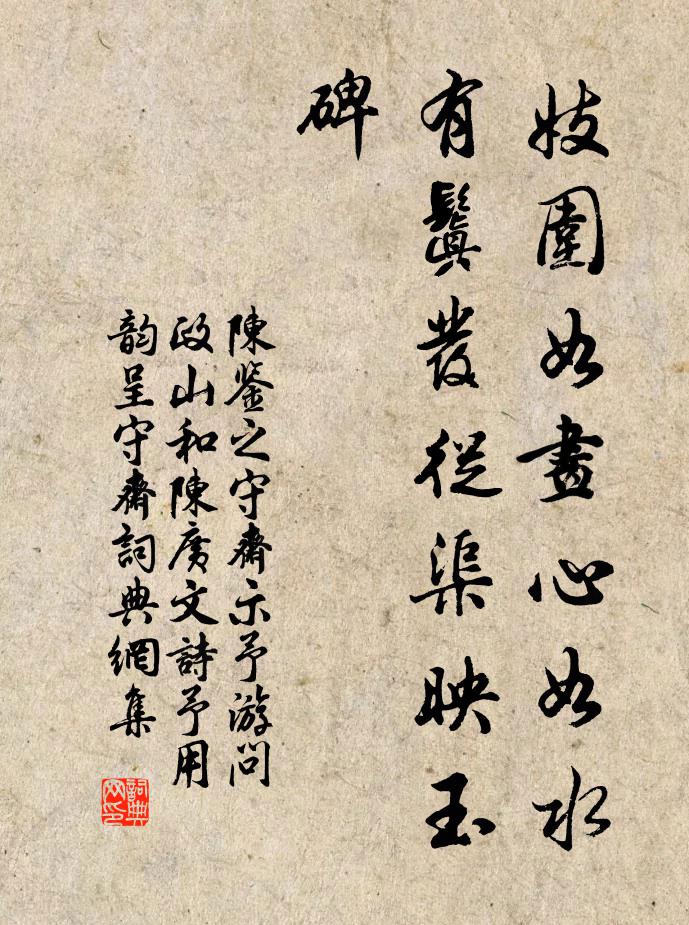 妓圍如畫心如水
有鬒發從渠映玉
碑
陳鑒之守齋示予游問
政山和陳廣文詩予用
韵呈守齋詞典網集
詞典
网印